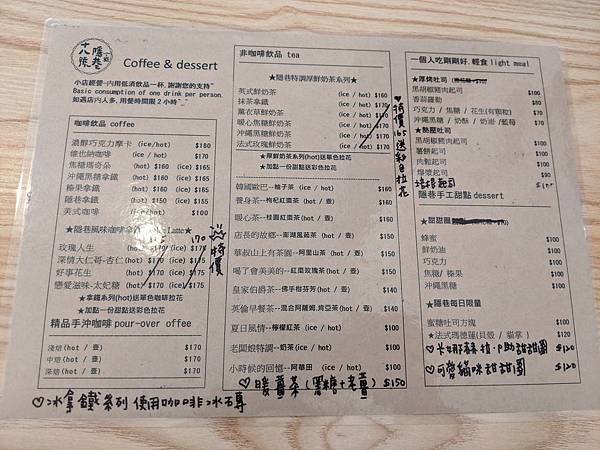 十八號
隱巷
Coffee & dessert
小店經營~內用低消飲品一杯，謝謝您的支持~
Basic consumption of one drink per person.
如遇店內人多，用餐時間限2小時~_~
咖啡飲品 coffee
濃醇巧克力摩卡 (ice/hot) $180
維也納咖啡 (ice / hot) $170
焦糖瑪奇朵 (hot) $160 (ice) $165
沖繩黑糖拿鐵 (hot) $160 (ice) $165
榛果拿鐵 (hot) $160 (ice) $165
隱巷拿鐵 (hot) $150 (ice) $155
美式咖啡 (ice/hot) $100
★隱巷風味咖啡拿鐵 Latte★
玫瑰人生 (hot) $170 (ice) $175
深情大仁哥-杏仁 (hot) $170 (ice) $175
好事花生 (hot) $170 (ice) $175
戀愛滋味-太妃糖 (hot) $170 (ice) $175
170
特價
★拿鐵系列(hot)送單色咖啡拉花
★加點一份甜點送彩色拉花
精品手沖咖啡 pour-over offee
淺焙(hot / 壺) $150
中焙(hot / 壺) $150
深焙(hot / 壺) $150
♡冰拿鐵系列 使用咖啡冰磚
非咖啡飲品 tea
★隱巷特調厚鮮奶茶系列★
英式鮮奶茶 (ice / hot) $160
抹茶拿鐵 (ice / hot) $170
薰衣草鮮奶茶 (ice / hot) $170
暖心焦糖鮮奶茶 (ice / hot) $170
沖繩黑糖鮮奶茶 (ice / hot) $170
法式玫瑰鮮奶茶 (ice / hot) $170
♡特價165送彩色拉花
★厚鮮奶茶系列(hot)送單色拉花
★加點一份甜點送彩色拉花
韓國歐巴--柚子茶 (ice / hot) $140
養身茶--枸杞紅棗茶(hot / 壺) $140
暖心茶--桂圓紅棗茶(hot / 壺) $140
店長的故鄉--澎湖風茹茶 (hot / 壺) $150
華叔山上有茶園--阿里山茶 (hot / 壺) $150
喝了會美美的--紅棗玫瑰茶(hot / 壺) $150
皇家伯爵茶--佛手柑芬芳(hot / 壺) $150
英倫早餐茶--混合阿薩姆.肯亞茶(hot / 壺) $140
夏日風情--檸檬紅茶 (ice / hot) $100
老闆娘特調--奶茶(ice / hot) $100
小時候的回憶--阿華田 (ice / hot) $100
♡暖薑茶(黑糖+老薑) $150
一個人吃剛剛好. 輕食 light meal
★厚烤吐司
黑胡椒豬肉起司 $100
香蒜蘿勒 $80
巧克力 / 焦糖 / 花生(有顆粒) $70
沖繩黑糖 / 奶酥 / 奶油 /藍莓 $70
★熱壓吐司
黑胡椒豬肉起司 $100
薯餅起司 $90
肉鬆起司 $90
爆漿起司 $90
培根起司
隱巷手工甜點 dessert
★甜甜圈
蜂蜜 $100
鮮奶油 $100
巧克力 $100
焦糖/ 榛果 $100
沖繩黑糖 $100
★隱巷每日限量
蜜糖吐司方塊 $100
★法式瑪德蓮(貝殼 / 貓掌 ) $100
♡卡娜赫拉.P助甜甜圈 $120
♡可愛貓咪甜甜圈 $120